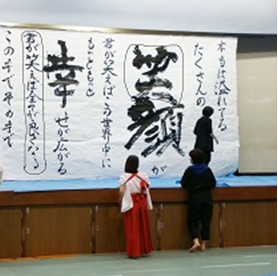 本当は溢れてる
たくさんの
笑顔が
君が笑えばこの世界中に
もっともっと
幸せが広がる
君が笑えば全てが良くなる
この手でその手で